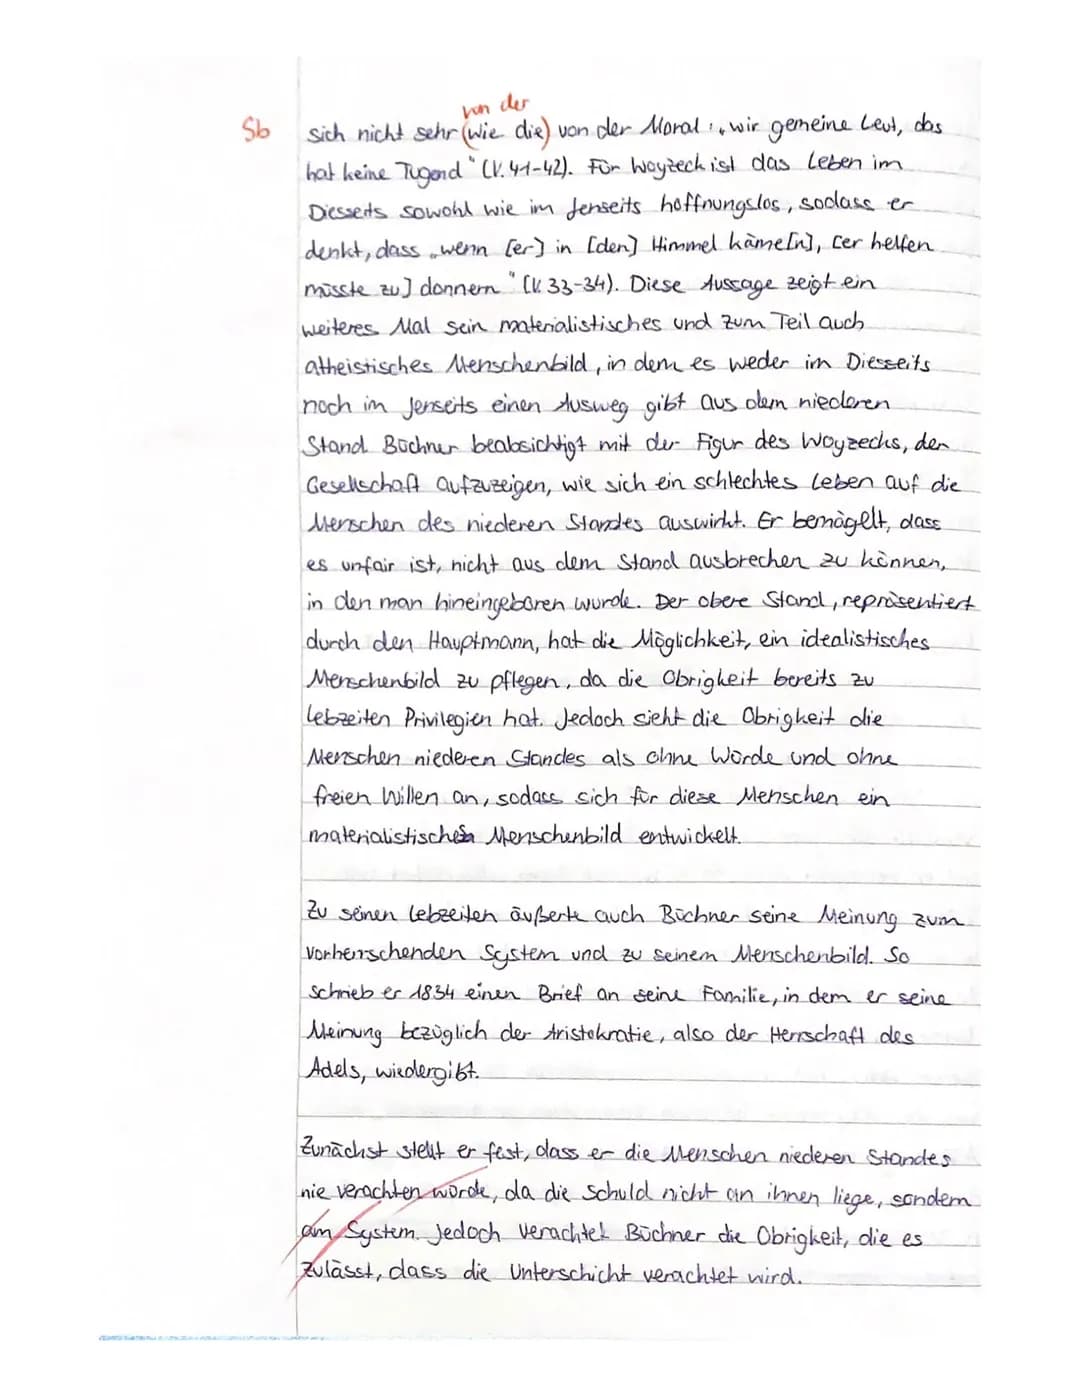 von der
Sb sich nicht sehr (wie die) von der Moral: „wir gemeine Leut, das
hat keine Tugend" (V. 41-42). Für Woyzeck ist das Leben im
Diesseits sowohl wie im Jenseits hoffnungslos, sodass er
denkt, dass „wenn [er] in [den] Himmel käme[n], [er helfen
müsste zu] donnern" (V. 33-34). Diese Aussage zeigt ein
weiteres Mal sein materialistisches und zum Teil auch
atheistisches Menschenbild, in dem es weder im Diesseits
noch im Jenseits einen Ausweg gibt aus dem niederen
Stand. Büchner beabsichtigt mit der Figur des Woyzecks, der
Gesellschaft aufzuzeigen, wie sich ein schlechtes Leben auf die
Menschen des niederen Standes auswirkt. Er bemägelt, dass
es unfair ist, nicht aus dem Stand ausbrechen zu können,
in den man hineingeboren wurde. Der obere Stand, repräsentiert
durch den Hauptmann, hat die Möglichkeit, ein idealistisches
Menschenbild zu pflegen, da die Obrigkeit bereits zu
Lebzeiten Privilegien hat. Jedoch sieht die Obrigkeit die
Menschen niederen Standes als ohne Würde und ohne
freien Willen an, sodass sich für diese Menschen ein
materialistisches Menschenbild entwickelt.
Zu seinen Lebzeiten äußerte auch Büchner seine Meinung zum
vorherrschenden System und zu seinem Menschenbild. So
schrieb er 1834 einen Brief an seine Familie, in dem er seine
Meinung bezüglich der Aristokratie, also der Herrschaft des
Adels, wiedergibt.
Zunächst stellt er fest, dass er die Menschen niederen Standes
nie verachten würde, da die Schuld nicht an ihnen liege, sondern
am System. Jedoch verachtet Büchner die Obrigkeit, die es
zulässt, dass die Unterschicht verachtet wird.